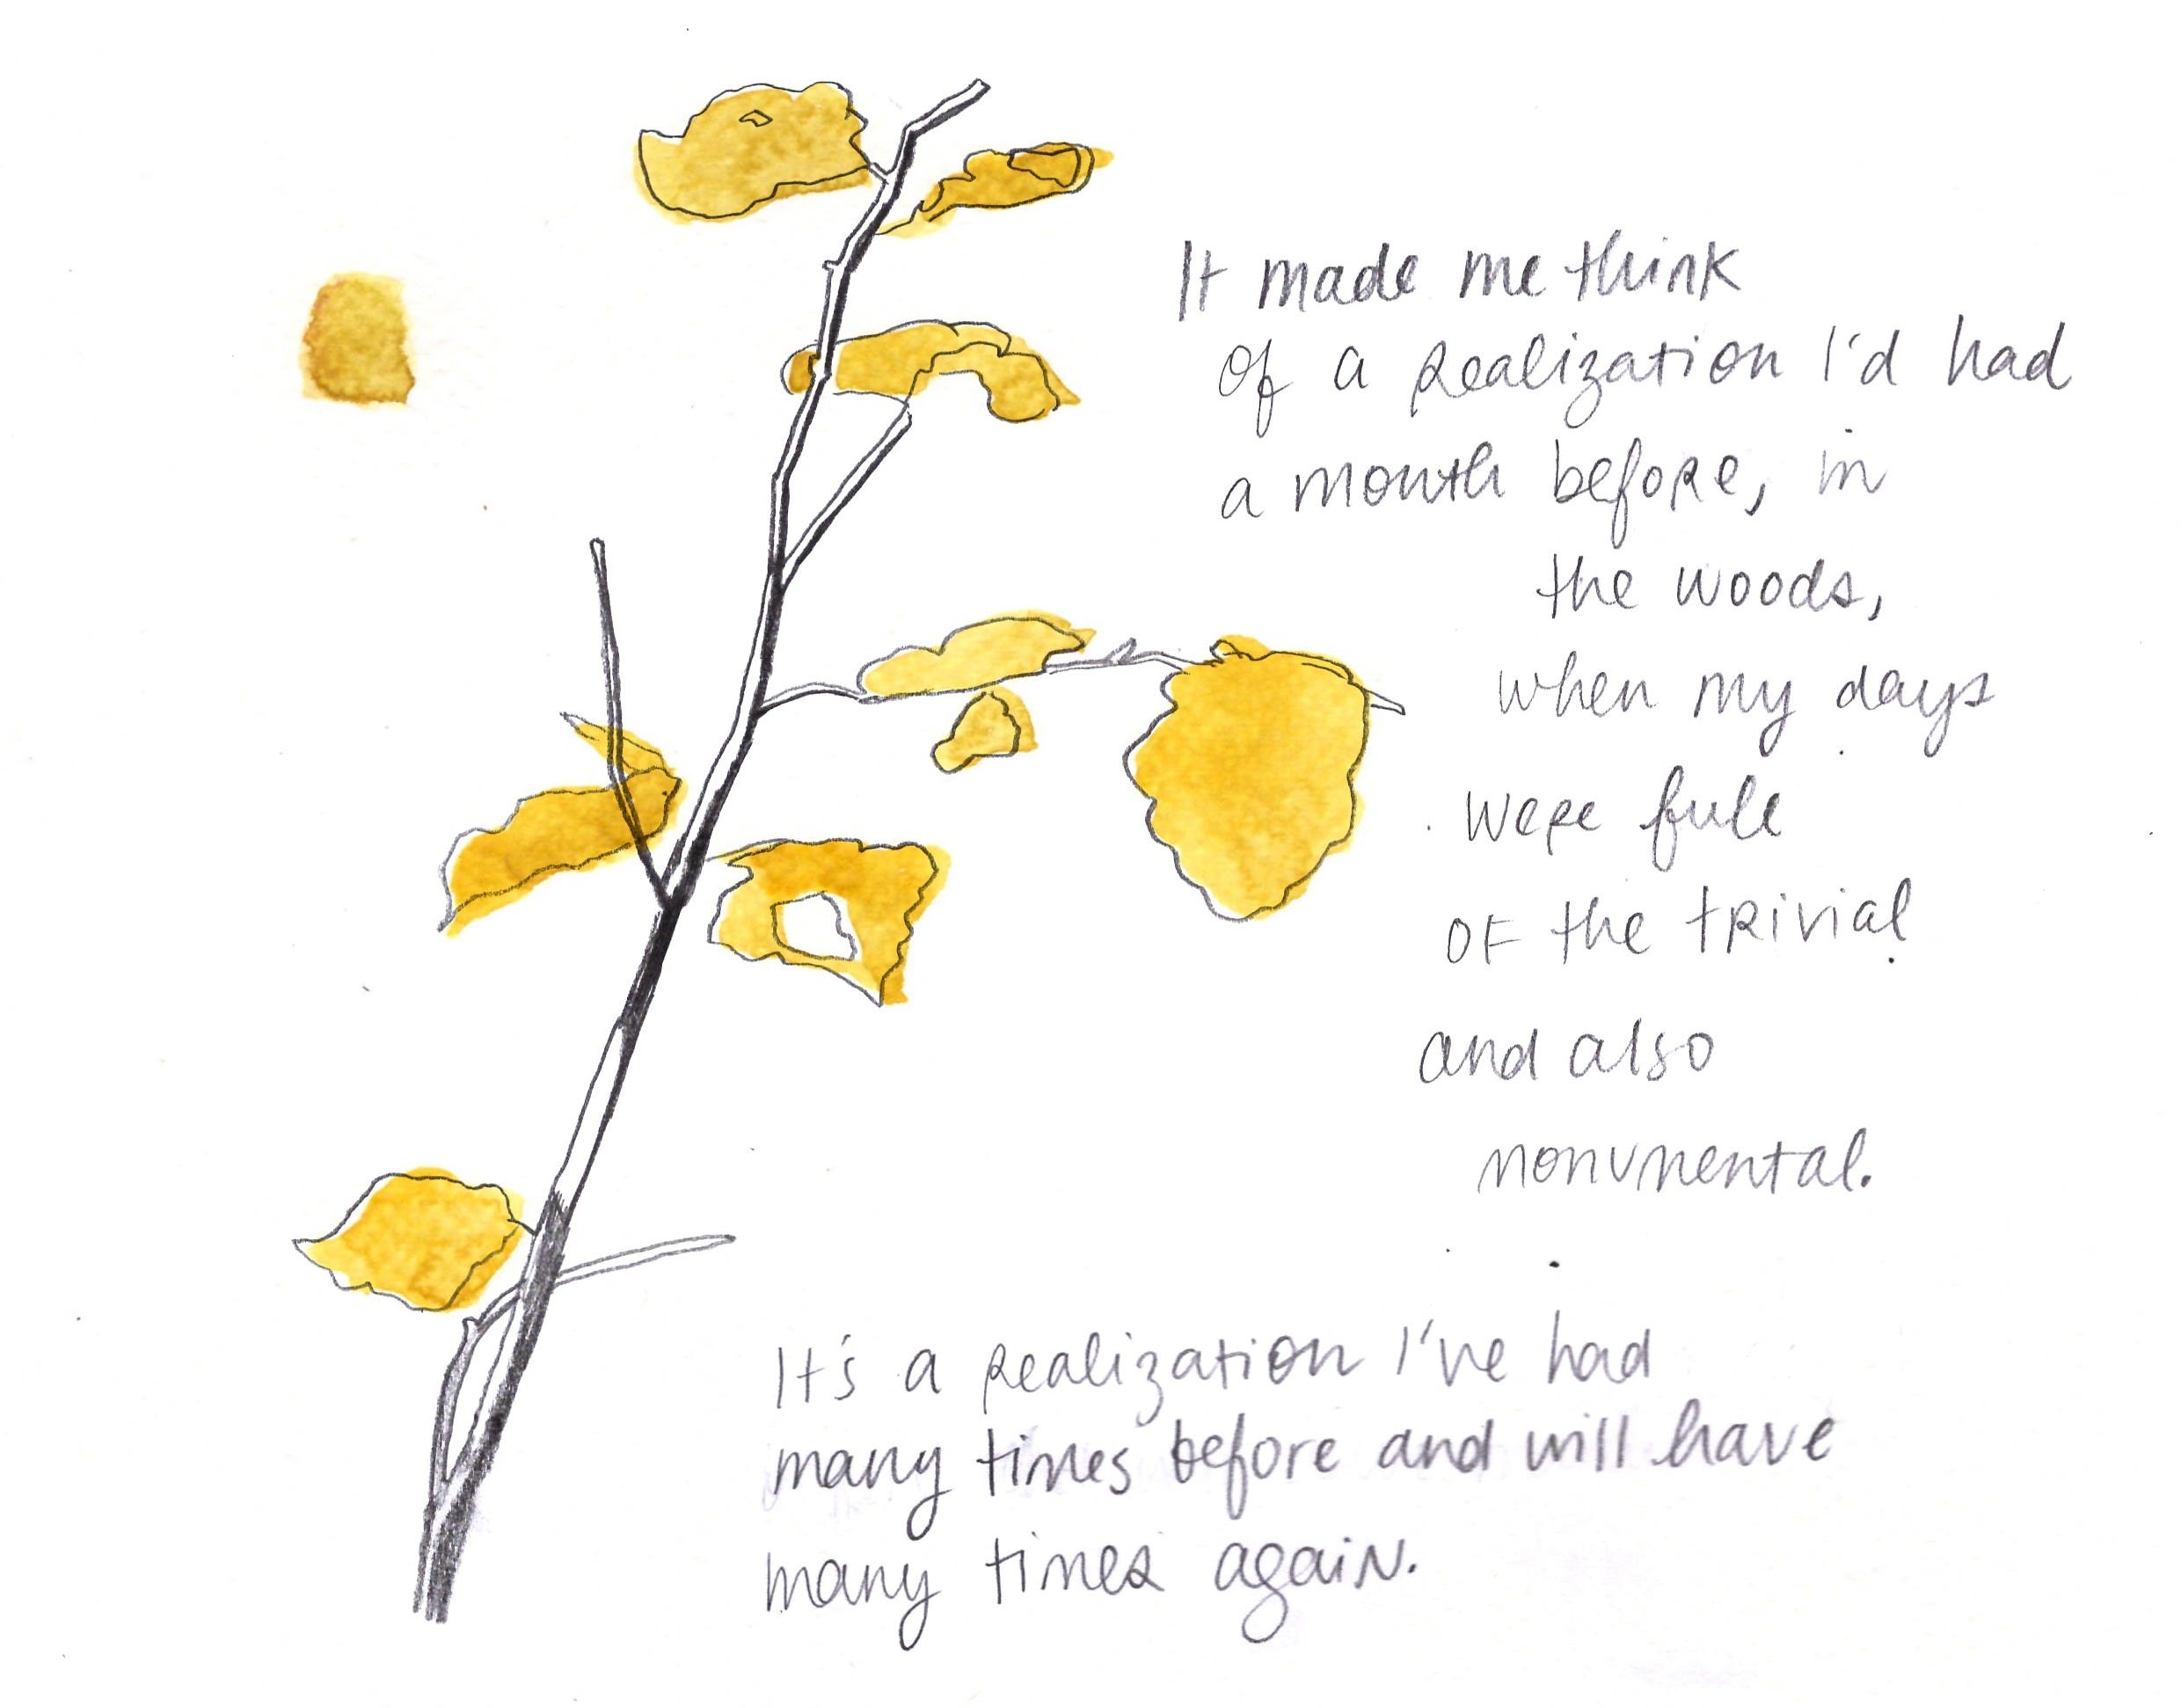 It made me think
of a realization I'd had
a month before, in
the woods,
when my days
were full
of the trivial
and also
monumental.
It's a realization I've had
many times before and will have
many times again.